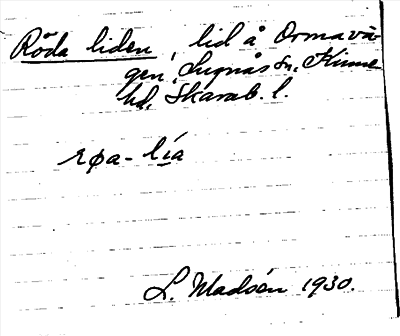 Röda liden, lid å Ormavä-
gen, Lugnås sn, Kinne
hd, Skarab. l.
røa-lia
L. Madsén 1930.